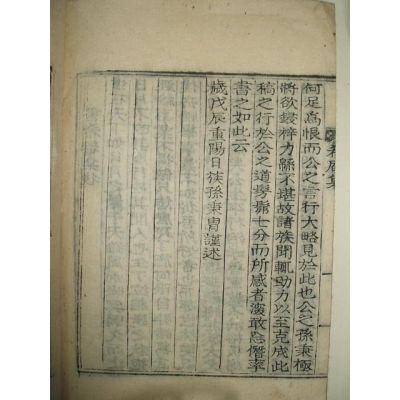 集
何足爲恨而公之言行大略見於此也公之孫秉極
將欲鋟梓力緜不堪故諸族聞輒助力以至克成此
稿之行於公之道髣髴七分而所感者深敢忘僭率
書之如此云
歲戊辰重陽日族孫秉胄謹述